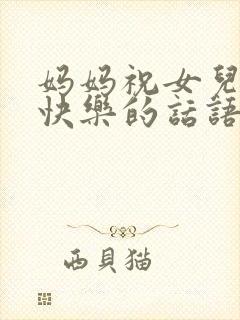 妈妈祝女兒
快樂的話語
西貝猫